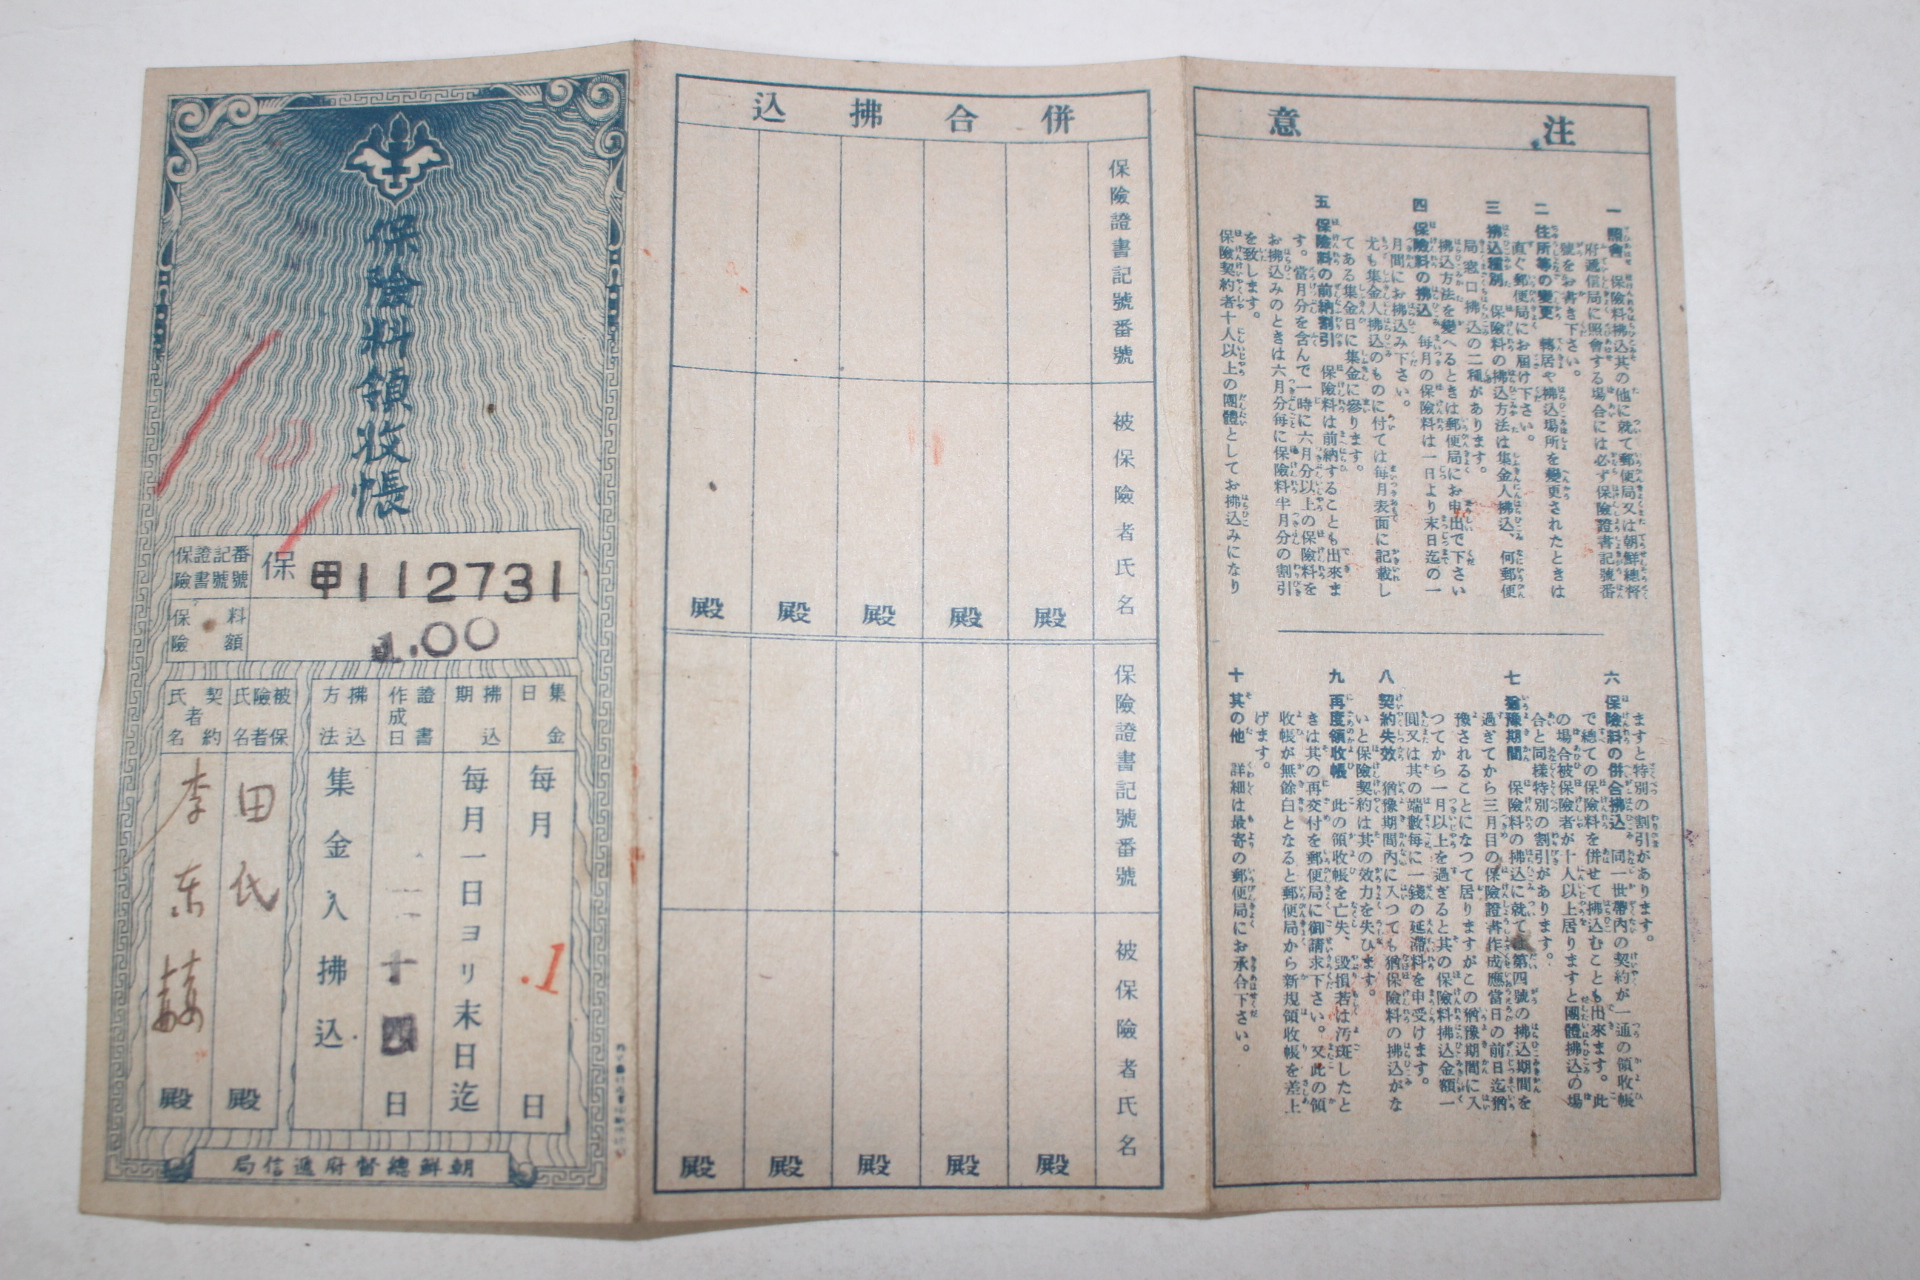 保險料領收帳
保險證書記號番號
保 甲112731
保險料額
1.00
集金日
每月
.1
日
拂込期
每月一日ヨリ末日迄
證書作成日
十四
日
拂込方法
集金人拂込
被保險者氏名
田氏
殿
契約者氏名
李東
殿
朝鮮總督府遞信局
併合拂込
保險證書記號番號
被保險者氏名
殿
殿
殿
殿
殿
保險證書記號番號
被保險者氏名
殿
殿
殿
殿
殿
注意
一 照會 保險料拂込其の他に就て郵便局又は朝鮮總督
府遞信局に照會する場合には必ず保險證書記號番
號をお書き下さい。
二 住所等の變更 轉居や拂込場所を變更されたときは
直ぐ郵便局にお届け下さい。
三 拂込種別 保險料の拂込方法は集金人拂込、何郵便
局窓口拂込の二種があります。
拂込方法を變へるときは郵便局にお申出で下さい
四 保險料の拂込 每月の保險料は一日より末日迄の一
月間にお拂込み下さい。
尤も集金人拂込のものに付ては每月表面に記載し
てある集金日に集金に參ります。
五 保險料の前納割引 保險料は前納することも出來ま
す。當月分を含んで一時に六月分以上の保險料を
お拂込みのときは六月分每に保險料半月分の割引
を致します。
保險契約者十人以上の團體としてお拂込みになり
ますと特別の割引があります。
六 保險料の併合拂込 同一世帶內の契約が一通の領收帳
で總ての保險料を併せて拂込むことも出來ます。此
の場合被保險者が十人以上居りますと團體拂込の場
合と同樣特別の割引があります。
七 猶豫期間 保險料の拂込に就ては第四號の拂込期間を
過ぎてから三月目の保險證書作成應當日の前日迄猶
豫されることになつて居りますがこの猶豫期間に入
つてから一月以上を過ぎると其の保險料拂込金額一
圓又は其の端數每に一錢の延滯料を申受けます。
八 契約失效 猶豫期間內に入つても猶保險料の拂込がな
いと保險契約は其の效力を失ひます。
九 再度領收帳 此の領收帳を亡失、毀損若は汚斑したと
きは其の再交付を郵便局に御請求下さい。又此の領
收帳が無餘白となると郵便局から新規領收帳を差上
げます。
十 其の他 詳細は最寄の郵便局にお承合下さい。